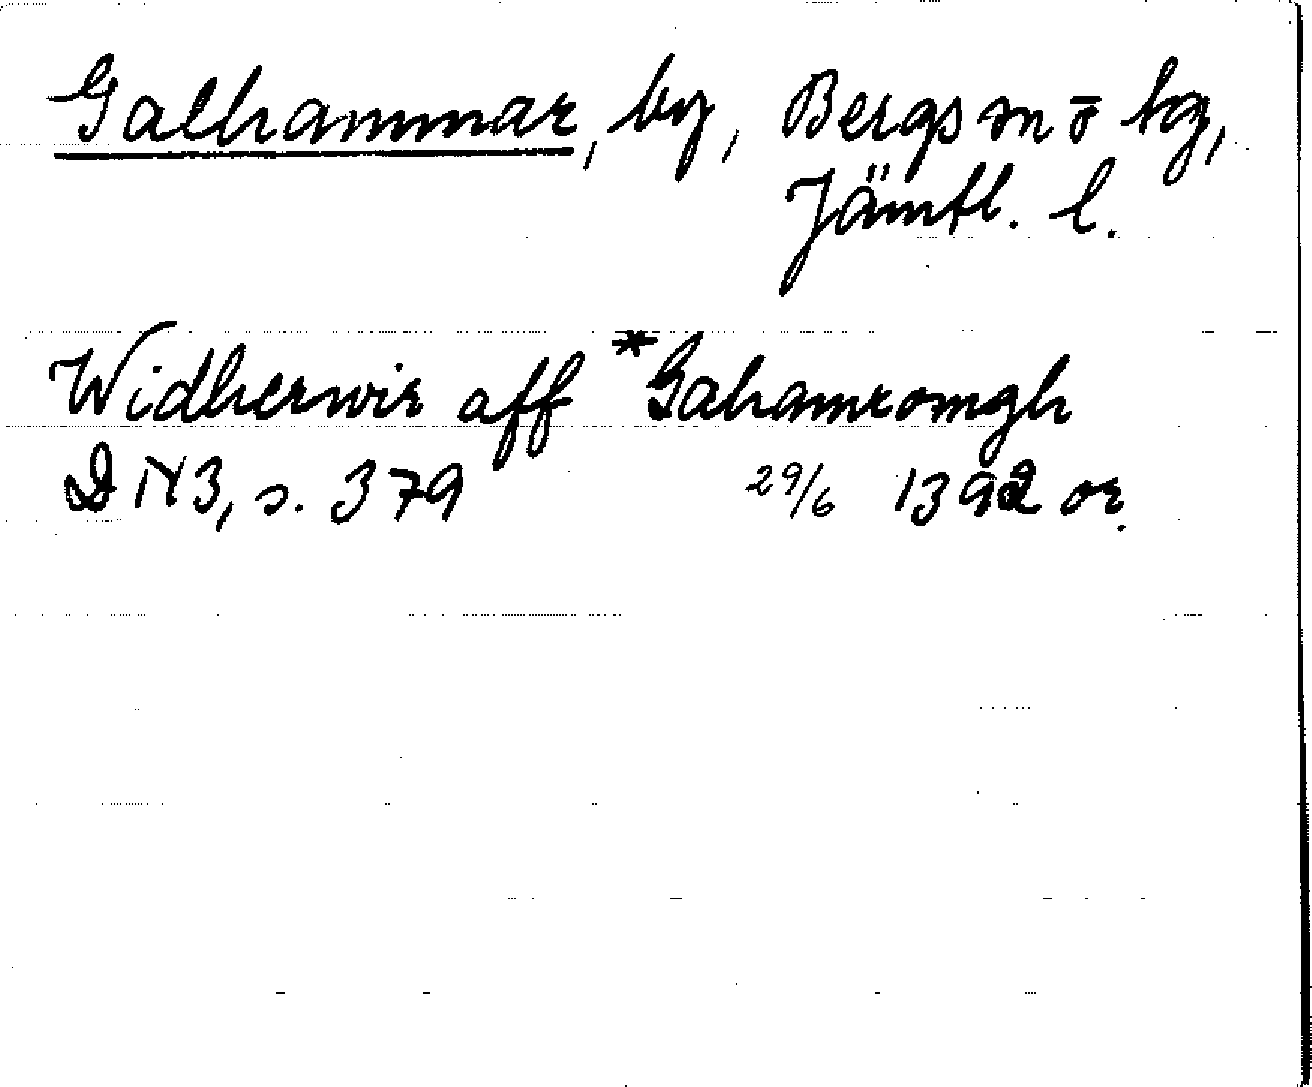 Galhammar, by, Bergs m ō kg,
Jämtl. l.
Widherwir aff *Gahamromgh
DN3, s. 379 29/6 1392 or.